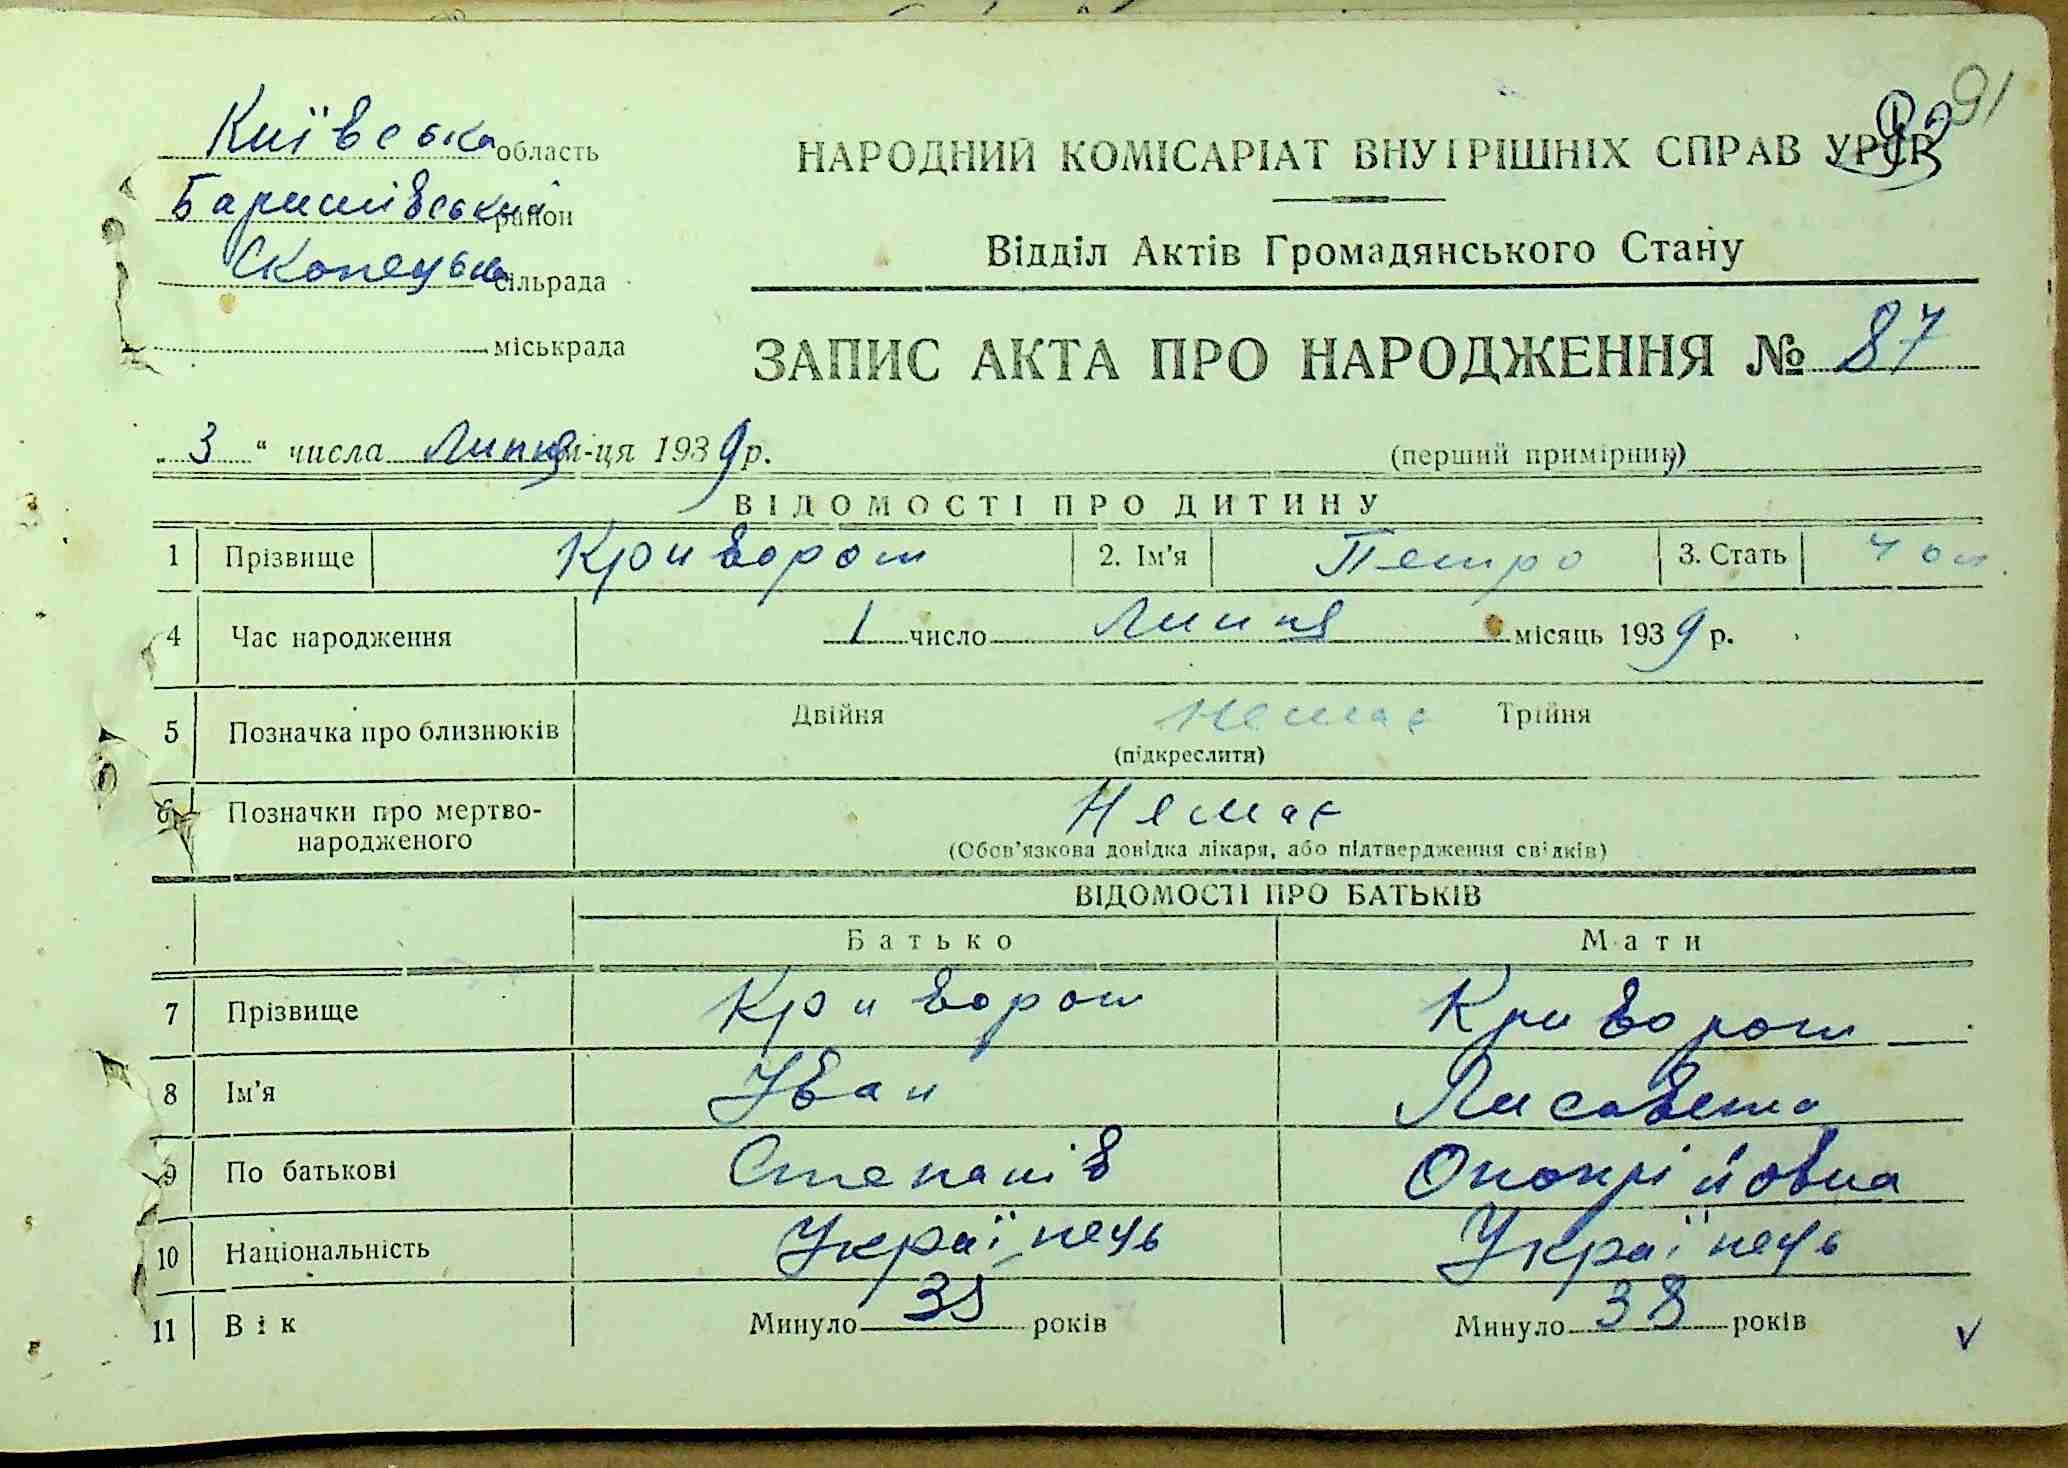 91
Київська область
НАРОДНИЙ КОМІСАРІАТ ВНУТРІШНІХ СПРАВ УРСР
Баришівський район
Відділ Актів Громадянського Стану
Скопецька сільрада
міськрада
ЗАПИС АКТА ПРО НАРОДЖЕННЯ № 87
„3“ числа Липця м-ця 1939 р. (перший примірник)
ВІДОМОСТІ ПРО ДИТИНУ
1 Прізвище Криворот 2. Ім'я Петро 3. Стать чол.
4 Час народження 1 число Липня місяць 1939 р.
5 Позначка про близнюків Двійня Немає Трійня
(підкреслити)
6 Позначки про мертво-народженого Немає
(Обов'язкова довідка лікаря, або підтвердження свідків)
ВІДОМОСТІ ПРО БАТЬКІВ
Батько Мати
7 Прізвище Криворот Криворот
8 Ім'я Іван Лисавета
9 По батькові Степанів
10 Національність Українець Українець
11 Вік Минуло років Минуло 38 років